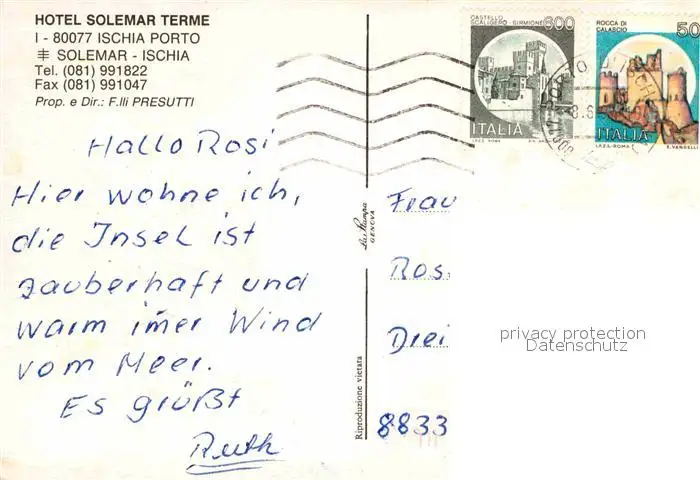 HOTEL SOLEMAR TERME
I - 80077 ISCHIA PORTO
SOLEMAR - ISCHIA
Tel. (081) 991822
Fax (081) 991047
Prop. e Dir.: F.lli PRESUTTI
CASTELLO
SCALIGERO - SIRMIONE
600
ITALIA
I.P.Z.S. ROMA
ROCCA DI
CALASCIO
50
ITALIA
I.P.Z.S. - ROMA
E. VANGELLI
Hallo Rosi
Hier wohne ich,
die Insel ist
zauberhaft und
warm imer Wind
vom Meer.
Es grüßt
Ruth
La Stampa
GENOVA
Riproduzione vietata
Frau
Ros
Drei
8833
privacy protection
Datenschutz